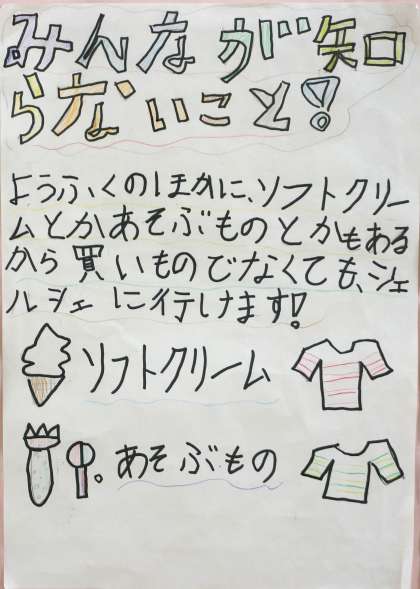 みんなが知
らないこと!
ようふくのほかに、ソフトクリー
ムとかあそぶものとかもある
から買いものでなくても、シェ
ルシェに行けます!
ソフトクリーム
あそぶもの